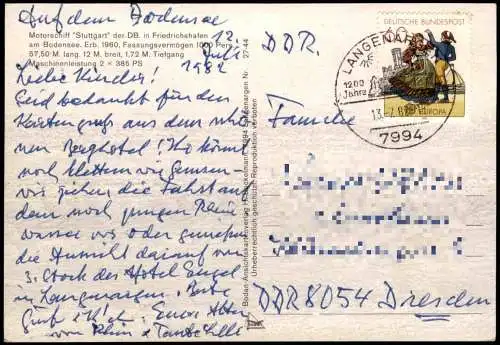 Auf dem Bodensee
12. Juli 1982
Motorschiff "Stuttgart" der DB. in Friedrichshafen
am Bodensee. Erb. 1960, Fassungsvermögen 1000 Pers.
57,50 M. lang, 12 M. breit, 1,72 M. Tiefgang
Maschinenleistung 2 x 385 PS
Liebe Kinder!
Seid bedankt für den
Kartengruß aus dem schö-
nen Berghotel! Ihr könnt
noch klettern wie Gemsen -
wir ziehen die Fahrt auf
dem noch jungen Rhein
wasser vor oder genießen
die darauf vom
3. Stock des Hotel Engel
in Langenargen. Beste
Grüße Euer Alter
vom Rhein + Tante Hilde
27-44
Urheberrechtlich geschützt. Reproduktion verboten
DDR.
Familie
DDR 8054 Dresden
DEUTSCHE BUNDESPOST
EUROPA
LANGENAR
1200
Jahre
13.-7.82
7994